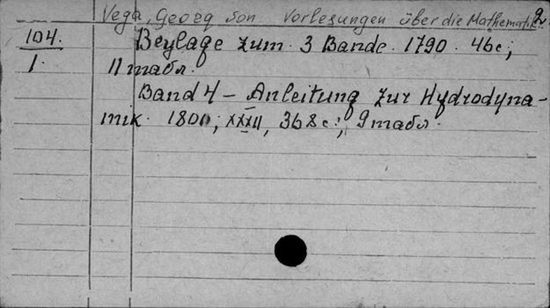 Vega, Georg von Vorlesungen über die Mathematik 2
104. Beylage zum 3 Bande. 1790. 46 с;
1. 11 табл.
Band 4 – Anleitung zur Hydrodyna-
mik. 1800; XXXII, 368 с.; 9 табл.